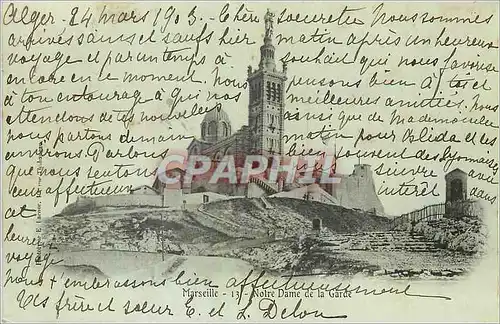 Alger - 24 mars 1903. - Chère soeurette Nous sommes
arrivés sans et sauf hier matin après un heureux
voyage et par un temps à souhait qui nous favorise
encore en ce moment. Nous pensons bien à toi et
à ton entourage à qui nous meilleures amitiés. Nous
attendons de tes nouvelles ainsi que de Mademoiselle
nous partons demain matin pour Blida et les
environs. Parlons bien souvent des Lyonnais
que nous suivre avec
en affectueux intérêt
et
heureux voyage
Nous t'embrassons bien affectueusement
CPARAMA
Marseille - 13 - Notre Dame de la Garde
tes frère et soeur E. et L. Delon